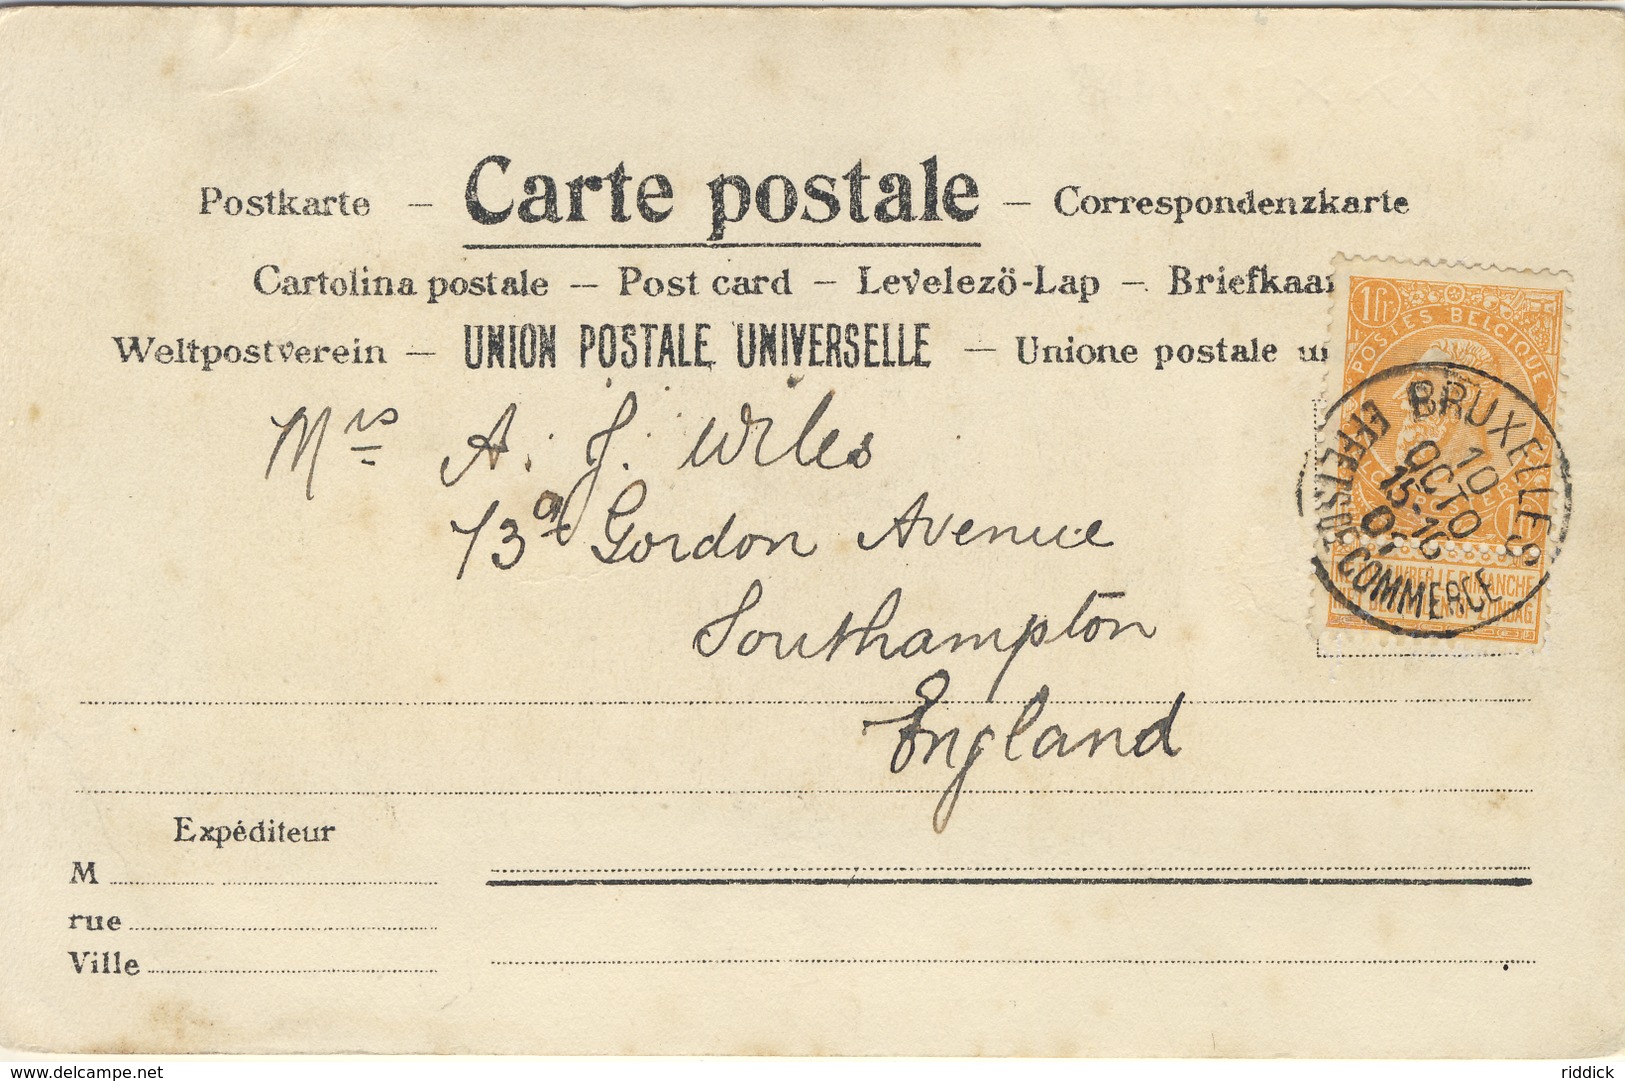 Postkarte – Carte postale – Correspondenzkarte
Cartolina postale – Post card – Levelezö-Lap – Briefkaar
Weltpostverein – UNION POSTALE UNIVERSELLE – Unione postale un
Mrs A. J. Wiles
73a Gordon Avenue
Southampton
England
1 fr.
POSTES BELGIQUE
BRUXELLES
10
OCTO
15-16
07
EFFETS DE COMMERCE
DIMANCHE
ZONDAG
Expéditeur
M
rue
Ville
delcampe.net
riddick